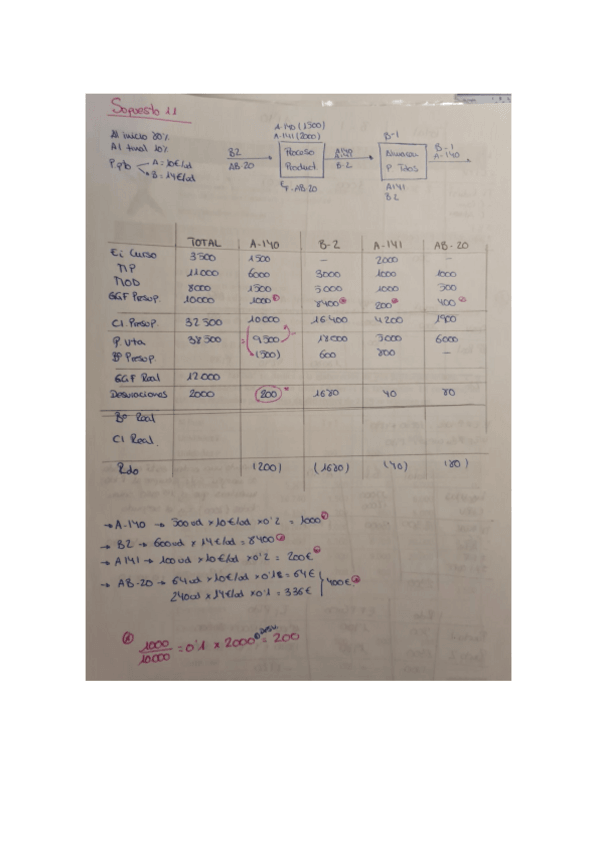 Supuesto 11
Al inicio 80%
Al final 10%
P. pto A = 10€/ud
B = 14€/ud
B2
AB-20
A-140 (1500)
A-141 (2000)
Proceso
Product.
Ef. AB-20
A140
A141
B-2
B-1
Almacén
P Tdos
A141
B2
B-1
A-140
TOTAL A-140 B-2 A-141 AB-20
Ei Curso 3500 1500 — 2000 —
MP 11000 6000 3000 1000 1000
MOD 8000 1500 5000 1000 500
GGF Presup. 10000 1000 8400 200 400
CI. Presup. 32500 10000 16400 4200 1900
P. Vta 38500 9500 18000 5000 6000
Bº Presup. (500) 600 800 —
GGF Real 12000
Desviaciones 2000 200 1680 40 80
Bº Real
CI Real.
Rdo (200) (1680) (40) (80)
→ A-140 → 500ud x 10€/ud x 0'2 = 1000
→ B2 → 600ud x 14€/ud = 8400
→ A141 → 100ud x 10€/ud x 0'2 = 200€
→ AB-20 → 64ud x 10€/ud x 0'1 = 64€
240ud x 14€/ud x 0'1 = 336€
400€
1000
10000
= 0'1 x 2000 = 200